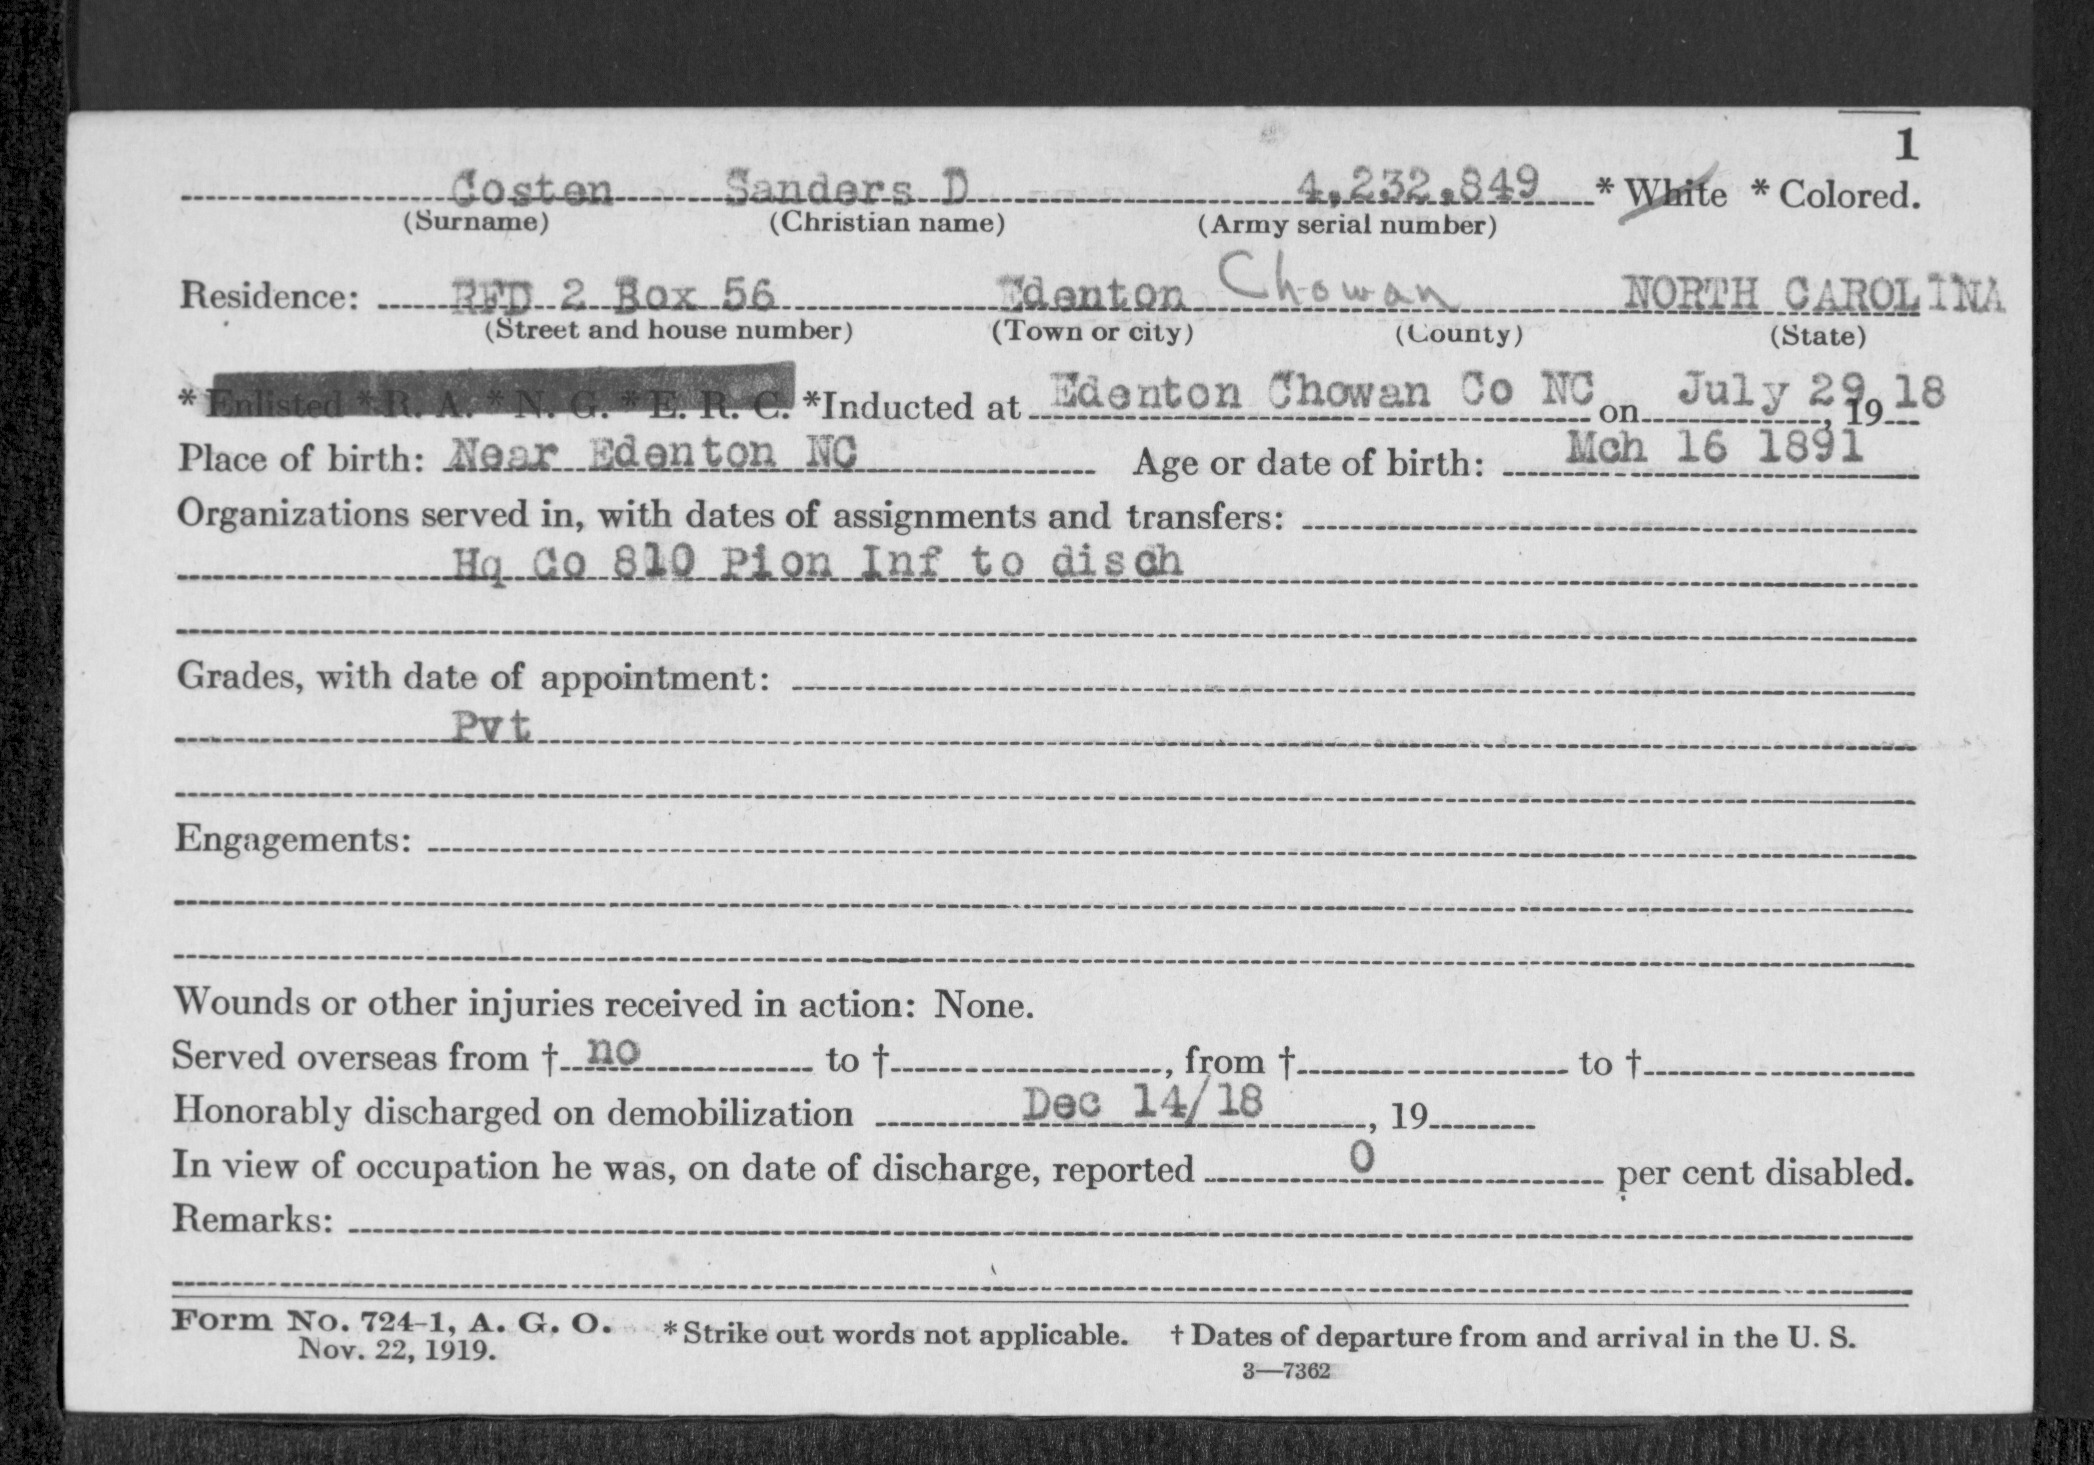 1
Costen Sanders D 4,232,849 * White * Colored.
(Surname) (Christian name) (Army serial number)
Residence: RFD 2 Box 56 Edenton Chowan NORTH CAROLINA
(Street and house number) (Town or city) (County) (State)
* Enlisted * R. A. * N. G. * E. R. C. *Inducted at Edenton Chowan Co NC on July 29, 1918
Place of birth: Near Edenton NC Age or date of birth: Mch 16 1891
Organizations served in, with dates of assignments and transfers:
Hq Co 810 Pion Inf to disch
Grades, with date of appointment:
Pvt
Engagements:
Wounds or other injuries received in action: None.
Served overseas from † no to †, from † to †
Honorably discharged on demobilization Dec 14/18, 19
In view of occupation he was, on date of discharge, reported 0 per cent disabled.
Remarks:
Form No. 724-1, A. G. O. * Strike out words not applicable. † Dates of departure from and arrival in the U. S.
Nov. 22, 1919.
3—7362